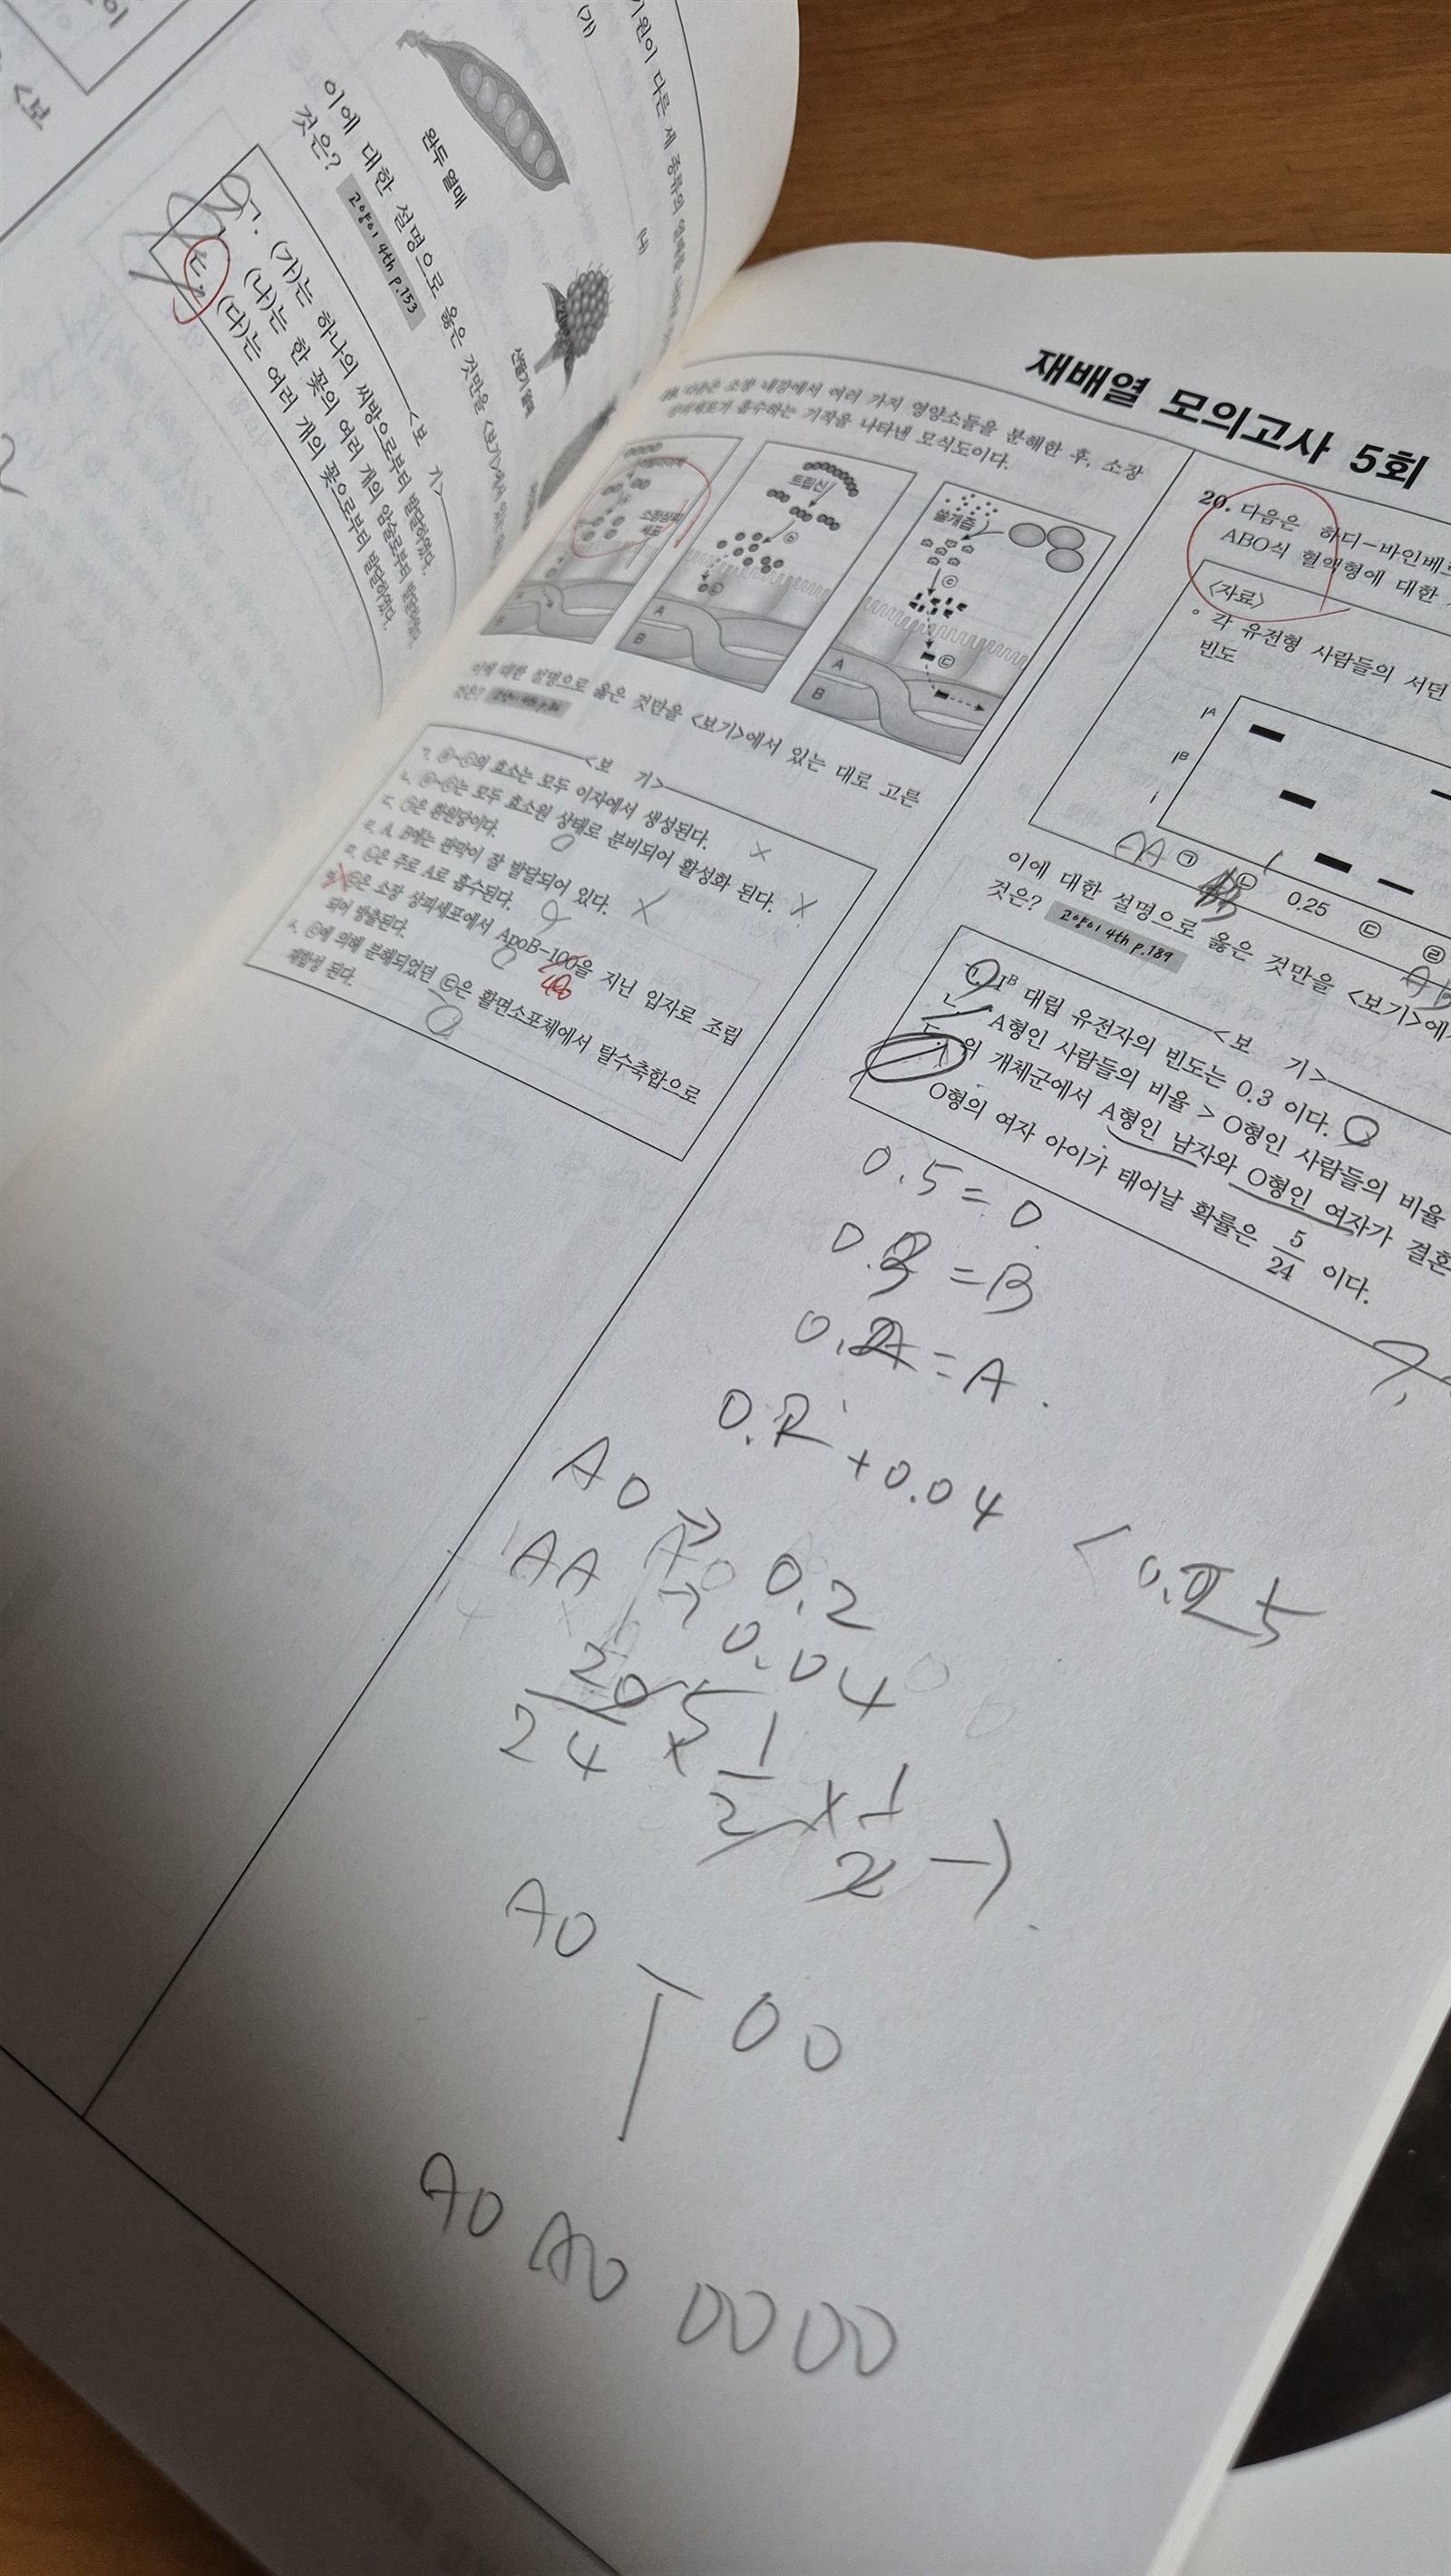 <보
기원이 다른 세 종류의
(가)
(나)
완두 열매
산딸기 열매
이에 대한 설명으로 옳은 것만을 <보기>에서
것은? 고양이 4th p.153
<보 기>
ㄱ. (가)는 하나의 씨방으로부터 발달하였다.
(나)는 한 꽃의 여러 개의 암술로부터 발달하였다.
(다)는 여러 개의 꽃으로부터 발달하였다.
재배열 모의고사 5회
19. 다음은 소장 내강에서 여러 가지 영양소들을 분해한 후, 소장
상피세포가 흡수하는 기작을 나타낸 모식도이다.
소장상피
세포
트립신
A
B
쓸개즙
ⓒ
A
B
이에 대한 설명으로 옳은 것만을 <보기>에서 있는 대로 고른
것은?
<보 기>
ㄱ. ⓐ~ⓒ의 효소는 모두 이자에서 생성된다. X
ㄴ. ⓐ~ⓒ는 모두 효소원 상태로 분비되어 활성화 된다. X
ㄷ. ㉠은 환원당이다. O
ㄹ. A, B에는 판막이 잘 발달되어 있다. X
ㅁ. ㉡은 주로 A로 흡수된다.
㉢은 소장 상피세포에서 ApoB-100을 지닌 입자로 조립
되어 방출된다.
48
ㅅ. ⓒ에 의해 분해되었던 ㉢은 활면소포체에서 탈수축합으로
재합성 된다.
20. 다음은 하디-바인베르
ABO식 혈액형에 대한
<자료>
◦ 각 유전형 사람들의 서던
빈도
Iᴬ
Iᴮ
i
㉠ ㉡ 0.25 ㉢ ㉣
AA BB AB
이에 대한 설명으로 옳은 것만을 <보기>에서
것은? 고양이 4th p.189
<보 기>
ㄱ. Iᴮ 대립 유전자의 빈도는 0.3 이다. O
ㄴ. A형인 사람들의 비율 > O형인 사람들의 비율
ㄷ. 위 개체군에서 A형인 남자와 O형인 여자가 결혼
O형의 여자 아이가 태어날 확률은 5/24 이다.
0.5 = O
0.3 = B
0.2 = A
0.2 + 0.04 < 0.25
AO → 0.2
AA → 0.04
20/24 × 1/2 × 1/2 →
5
AO OO
AO AO OO OO